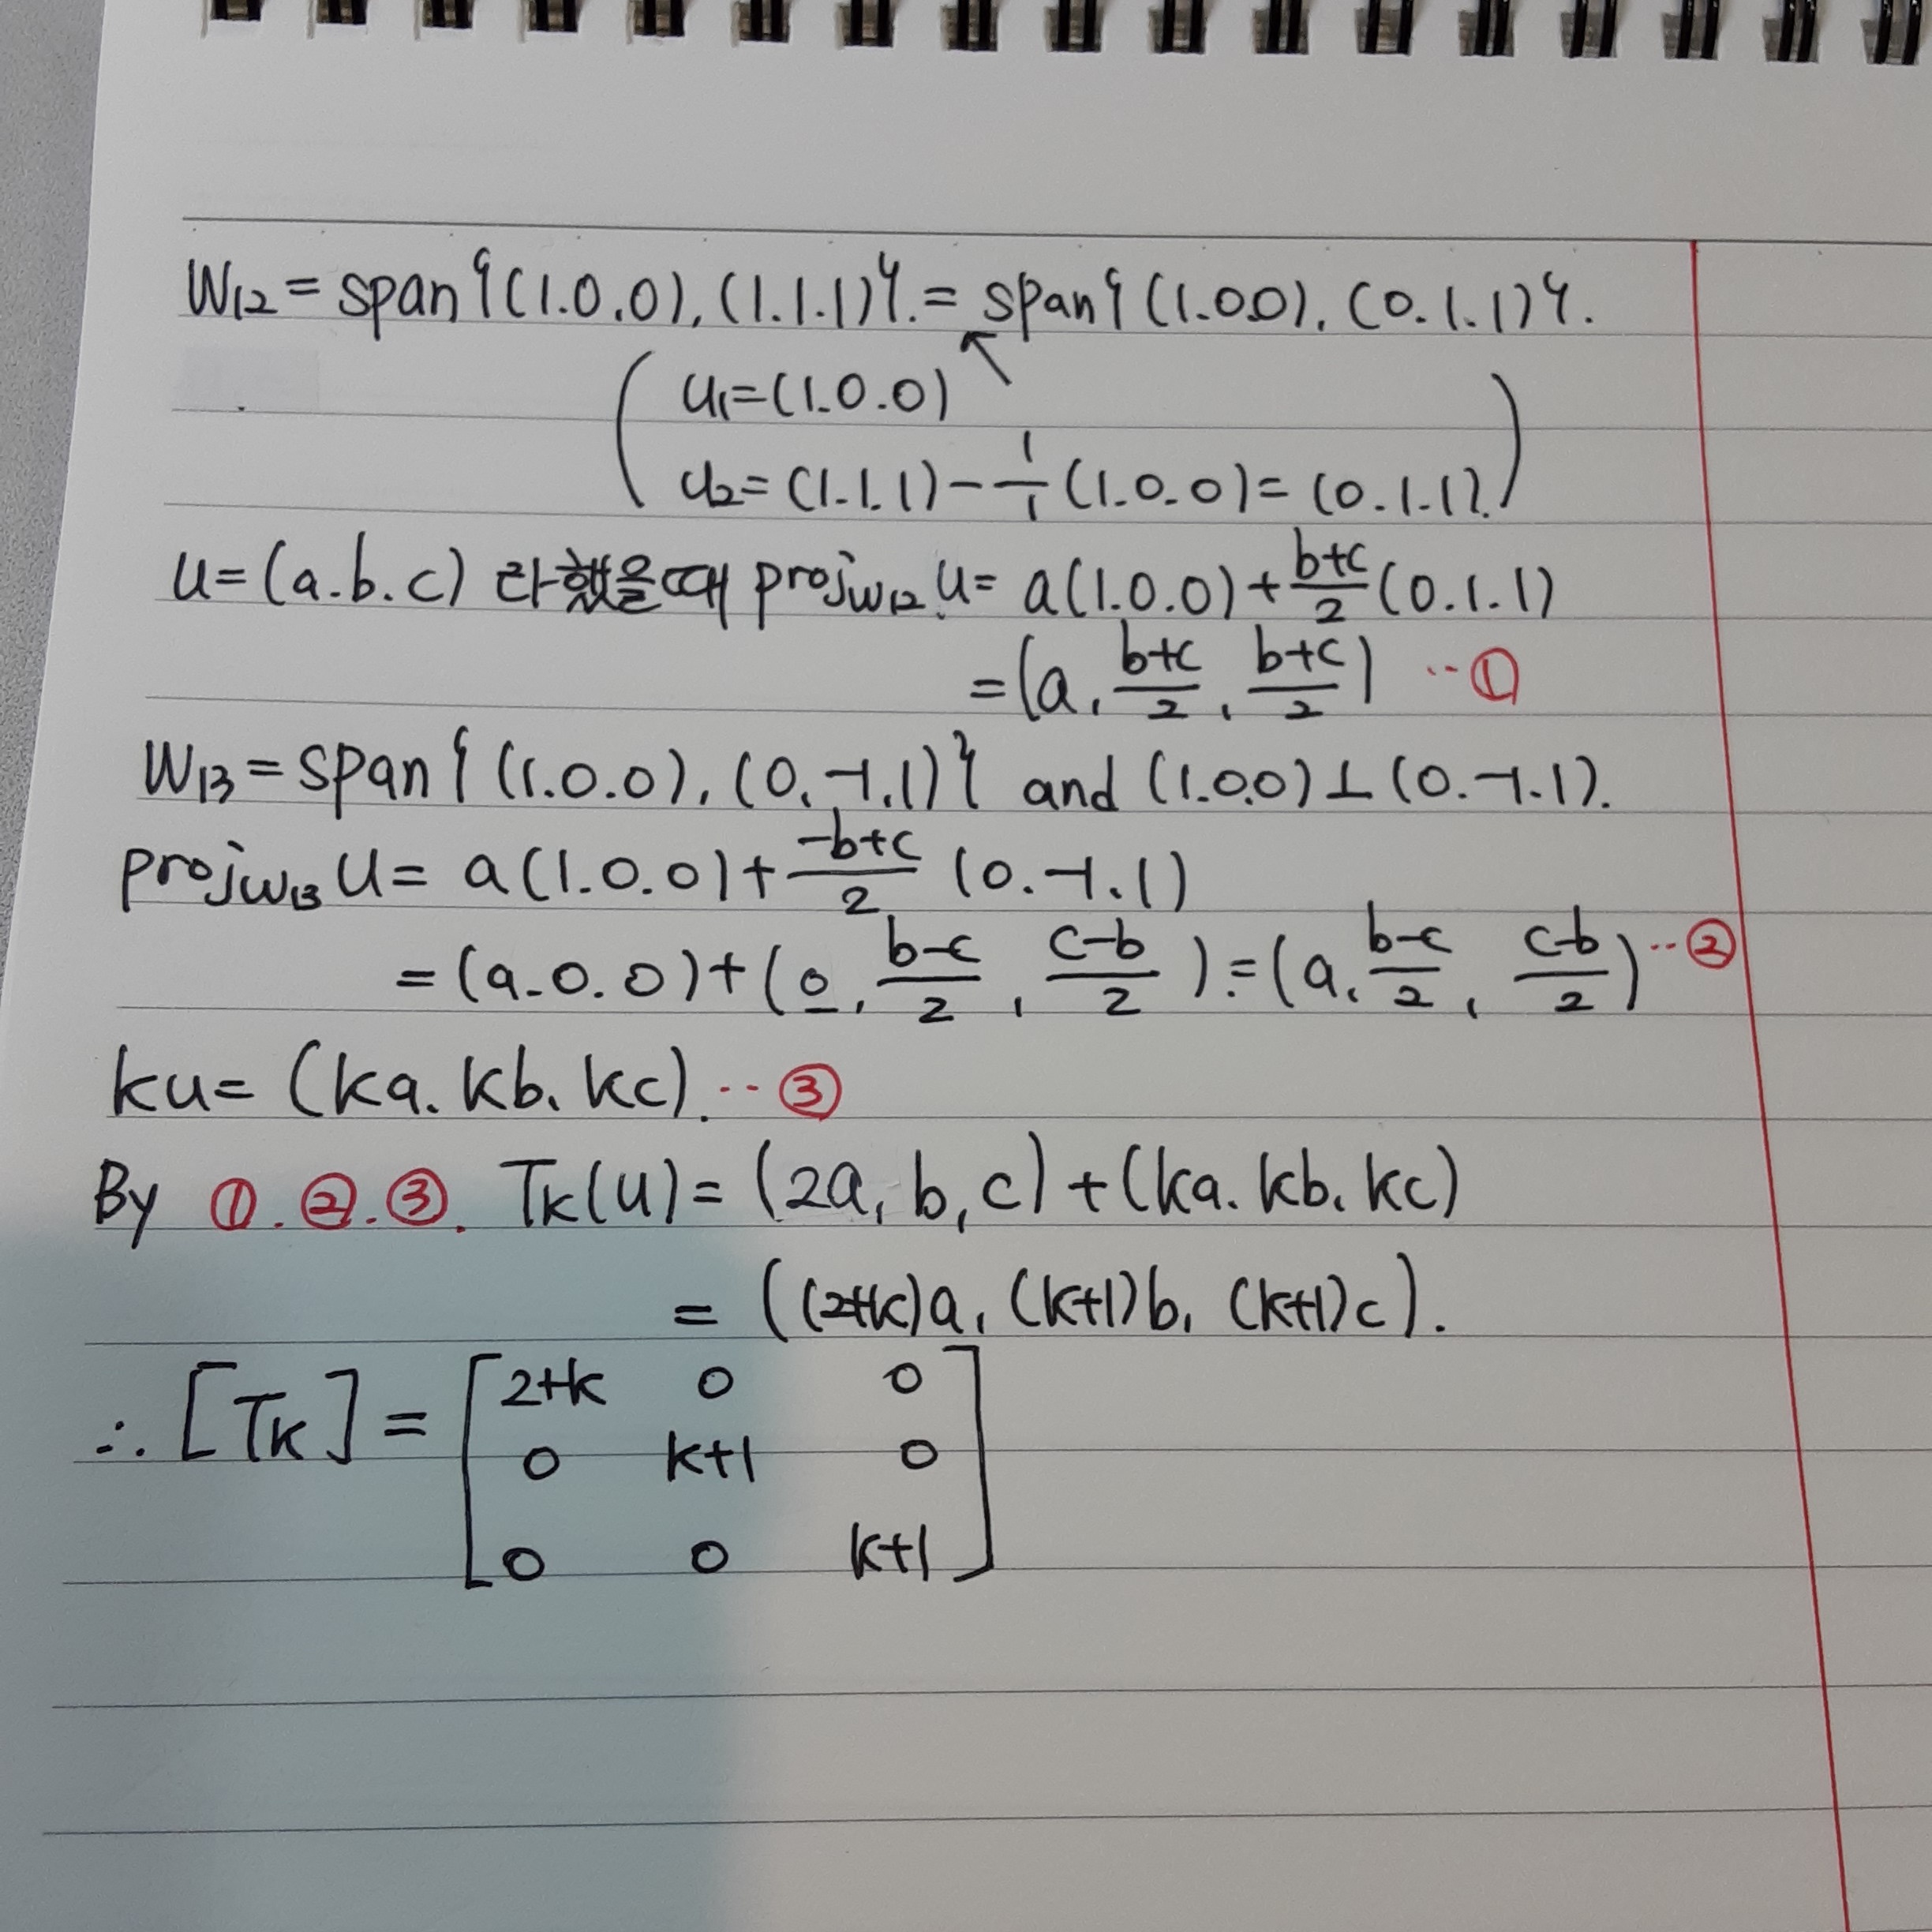 W₁₂ = span{(1.0.0), (1.1.1)}. = span{(1.0.0), (0.1.1)}.
u₁=(1.0.0)
u₂=(1.1.1)-1/1(1.0.0)=(0.1.1).
u=(a.b.c) 라 했을때 projw₁₂ u= a(1.0.0)+(b+c)/2(0.1.1)
=(a, (b+c)/2, (b+c)/2) ··①
W₁₃=span{(1.0.0), (0.-1.1)} and (1.0.0)⊥(0.-1.1).
projw₁₃ u= a(1.0.0)+(-b+c)/2 (0.-1.1)
=(a.0.0)+(0, (b-c)/2, (c-b)/2)=(a, (b-c)/2, (c-b)/2)··②
ku=(ka.kb.kc).··③
By ①.②.③. Tk(u)=(2a, b, c)+(ka.kb.kc)
=((2+k)a, (k+1)b, (k+1)c).
∴ [Tk]= [2+k 0 0
0 k+1 0
0 0 k+1]